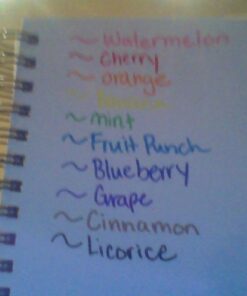 ~ Watermelon
~ Cherry
~ orange
~ Banana
~ mint
~ Fruit Punch
~ Blueberry
~ Grape
~ Cinnamon
~ Licorice